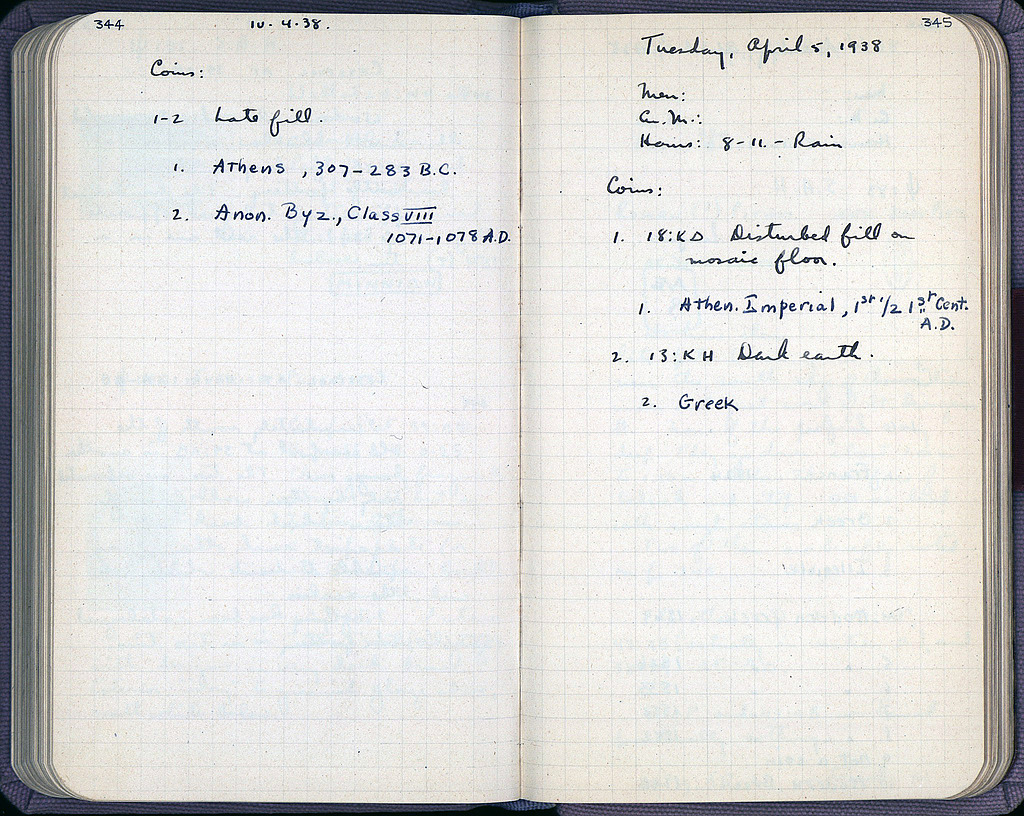 344
IV. 4. 38.
Coins:
1-2 Late fill.
1. Athens, 307-283 B.C.
2. Anon. Byz., Class VIII
1071-1078 A.D.
345
Tuesday, April 5, 1938
Men:
Hours: 8-11. - Rain
Coins:
1. 18:KD Disturbed fill on
mosaic floor.
1. Athen. Imperial, 1st 1/2 1st Cent.
A.D.
2. 13:KH Dark earth.
2. Greek